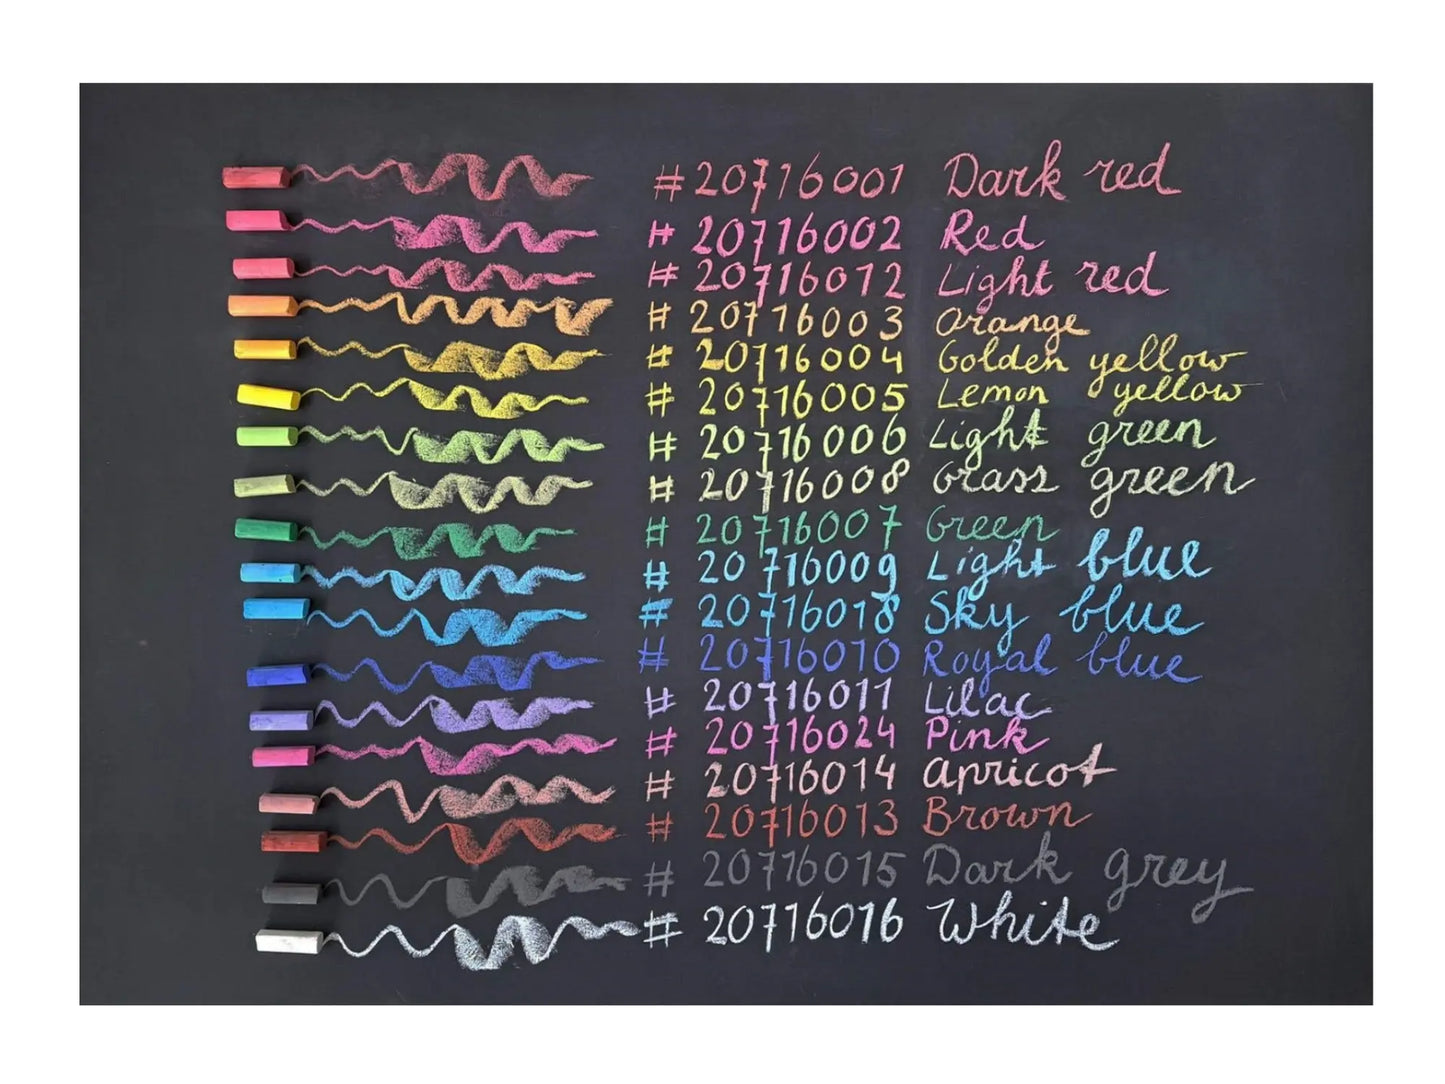 # 20716001 Dark red
# 20716002 Red
# 20716012 Light red
# 20716003 Orange
# 20716004 Golden yellow
# 20716005 Lemon yellow
# 20716006 Light green
# 20716008 Grass green
# 20716007 Green
# 20716009 Light blue
# 20716018 Sky blue
# 20716010 Royal blue
# 20716011 Lilac
# 20716024 Pink
# 20716014 Apricot
# 20716013 Brown
# 20716015 Dark grey
# 20716016 White